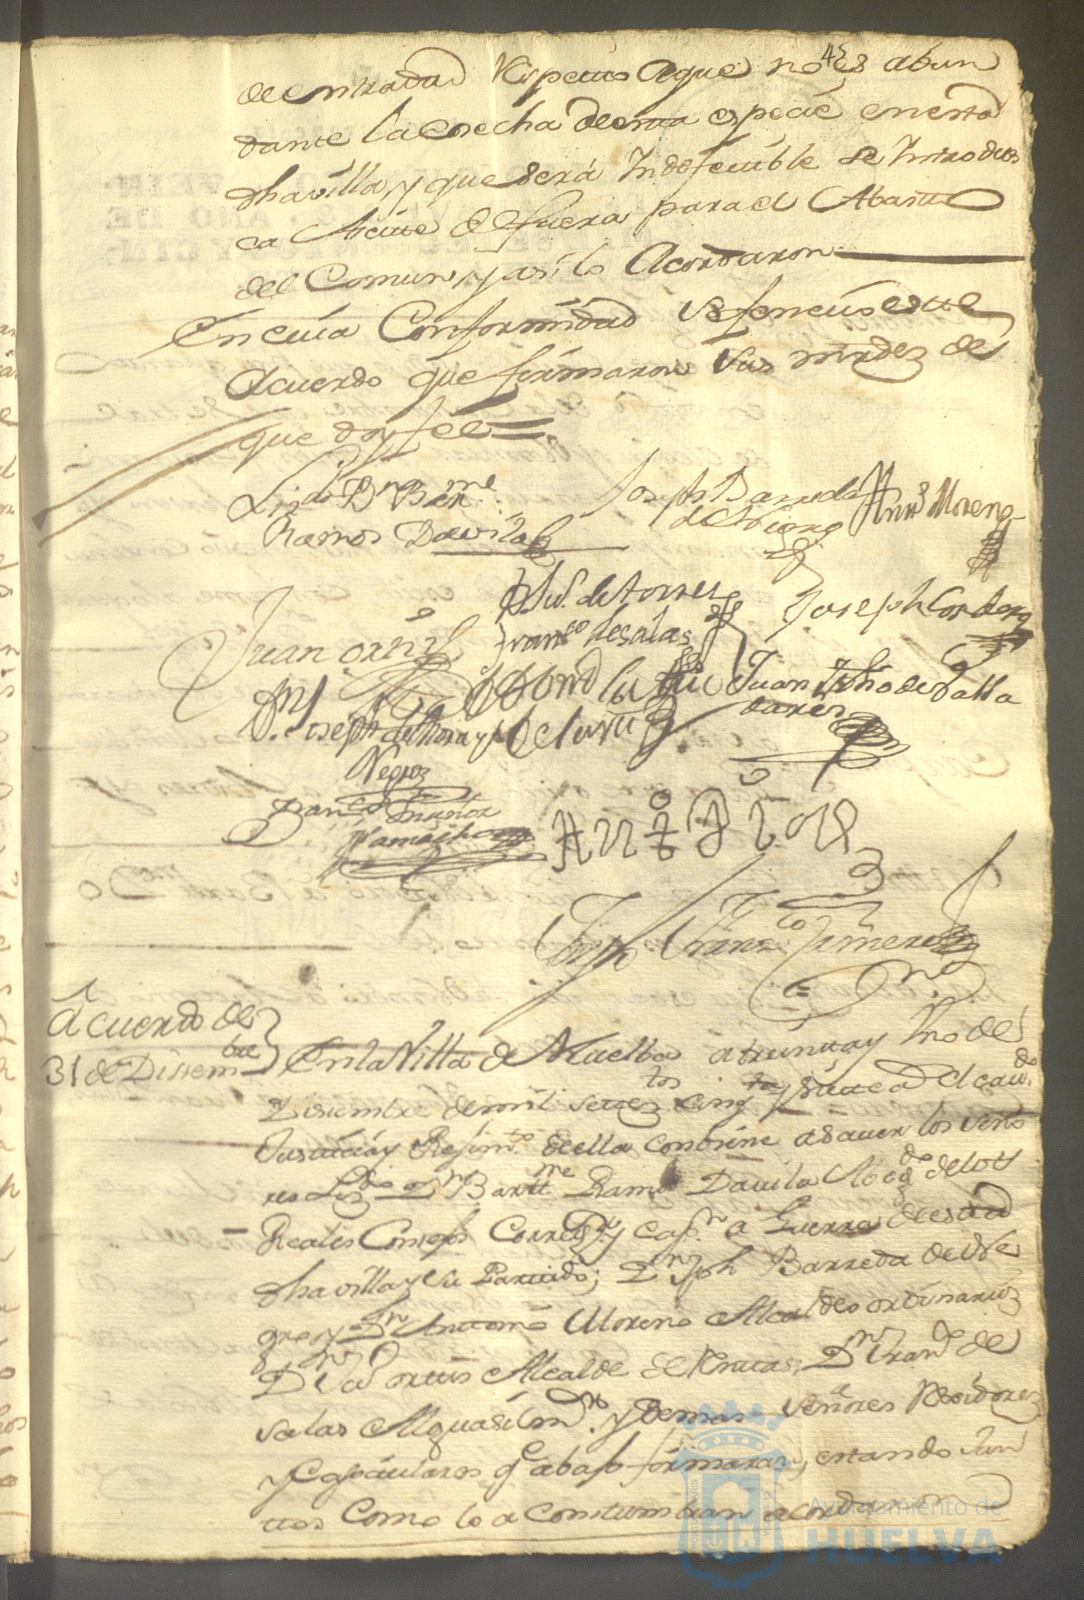 45
de entrada Respecto aque no es abun
dante la cosecha de esta especie en esta
dha villa, y que será Indefectible se Introdus
ca Aceite de fuera para el Abasto
del Comun, y asi lo Acordaron
En cuia Conformidad se fenecio este
Acuerdo que firmaron sus mrdez de
que doy fee =
Lizdo Dn Barme
Ramos Davila
Joseph Barreda
Antto Moreno
Juan ortiz
de torres
Franco de salas
Joseph Cordero
Dn Joseph de Mora y
Negro
Juan de Valla
dares
Joseph Franco Jimenez
Acuerdo de
31 de Disiembre
En la Villa de Huelba a treinta y Uno de
Disiembre de mil settetos cinqta y siete a el cavdo
Justicia y Rejimto de ella combiene a saver los seño
res Lizdo Dn Bartme Ramos Davila Abogdo de los
Reales Consejos Correxr y Capn a Guerra de esta
dha villa y su Partido; Dn Jph Barreda de
y Dn Antonio Moreno Alcaldes ordinarios
Dn Jun ortiz Alcalde de Dn Franco de
salas Alguasil mor y demas señores Rexidores
y Capitulares q abajo firmaran, estando Jun
tos Como lo a Constumbran acordaron
Ayuntamiento de
HUELVA